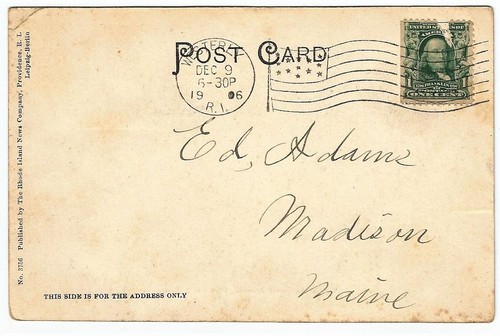 POST CARD
WESTERLY
DEC 9
6-30P
1906
R.I.
UNITED STATES OF AMERICA
ONE CENT
Ed, Adams
Madison
Maine
THIS SIDE IS FOR THE ADDRESS ONLY
No. 3756 Published by The Rhode Island News Company, Providence, R. I.
Leipzig-Berlin